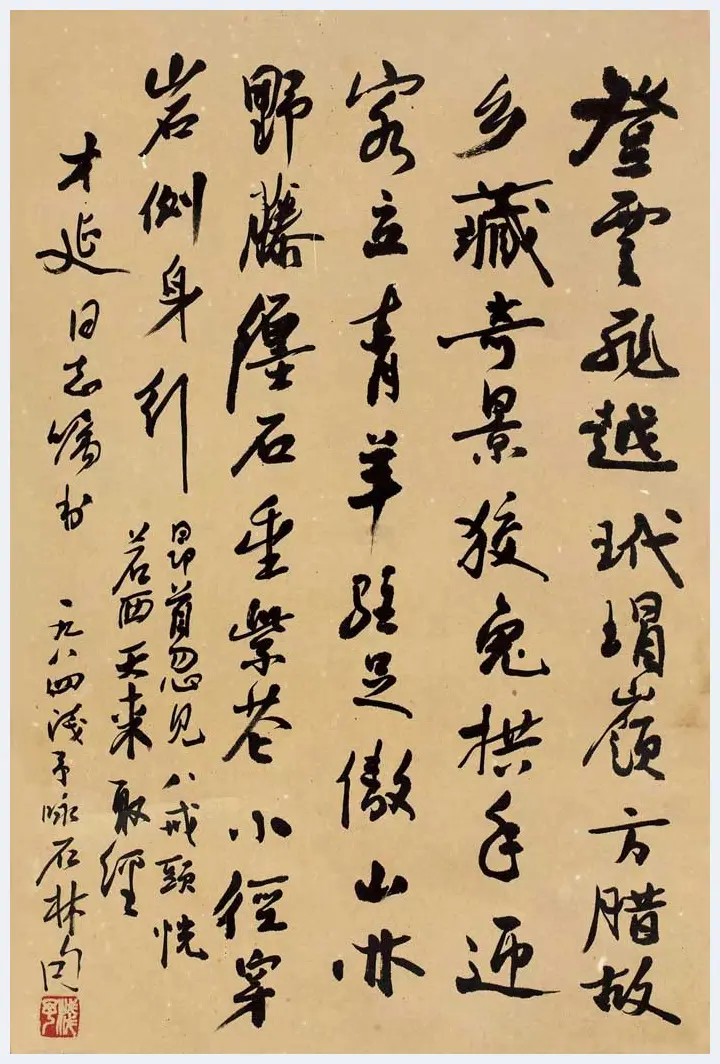 登雲飛越玳瑁嶺方腊故
乡藏奇景狡兔拱手迎
客立青羊駐足傲山林
野藤缠石垂紫花小徑穿
岩侧身行
昂首忽见八戒頭恍
若西天来取經
才延同志嘱书 一九八四浅予咏石林句
浅予